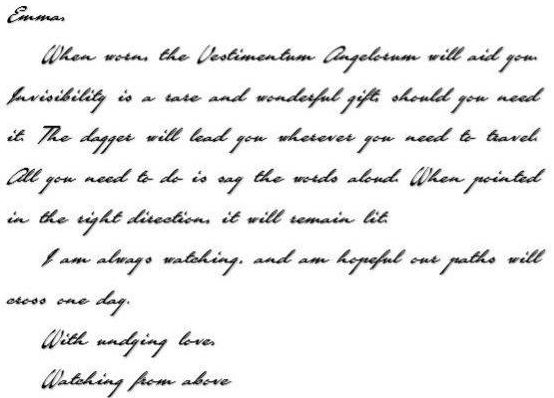 Emma,
When worn, the Vestimentum Angelorum will aid you.
Invisibility is a rare and wonderful gift, should you need
it. The dagger will lead you wherever you need to travel.
All you need to do is say the words aloud. When pointed
in the right direction, it will remain lit.
I am always watching, and am hopeful our paths will
cross one day.
With undying love,
Watching from above